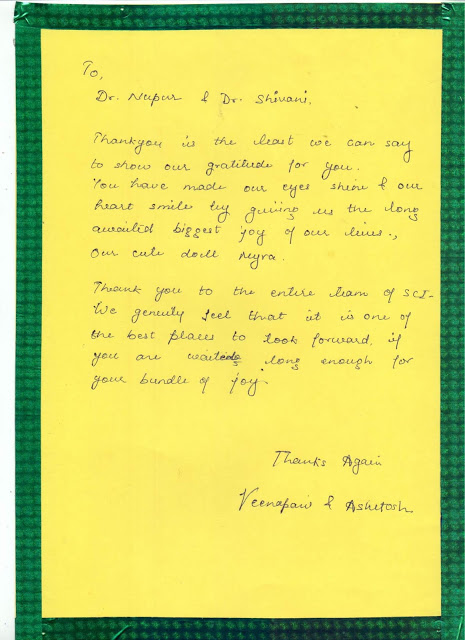 To,
Dr. Nupur & Dr. Shivani,
Thankyou is the least we can say
to show our gratitude for you.
You have made our eyes shine & our
heart smile by giving us the long
awaited biggest joy of our lives.,
Our cute doll Myra.
Thank you to the entire team of SCI-
We genuity feel that it is one of
the best places to look forward, if
you are waited long enough for
your bundle of joy.
Thanks Again
& Ashutosh